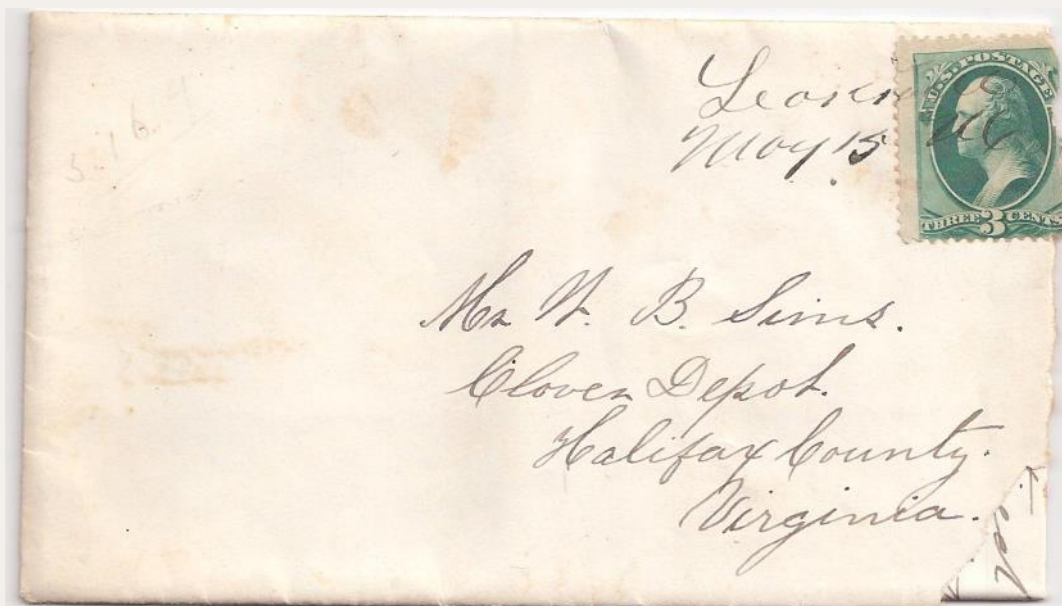 May 15
U.S. POSTAGE
THREE 3 CENTS
Mr W. B. Sims.
Clover Depot.
Halifax County.
Virginia.